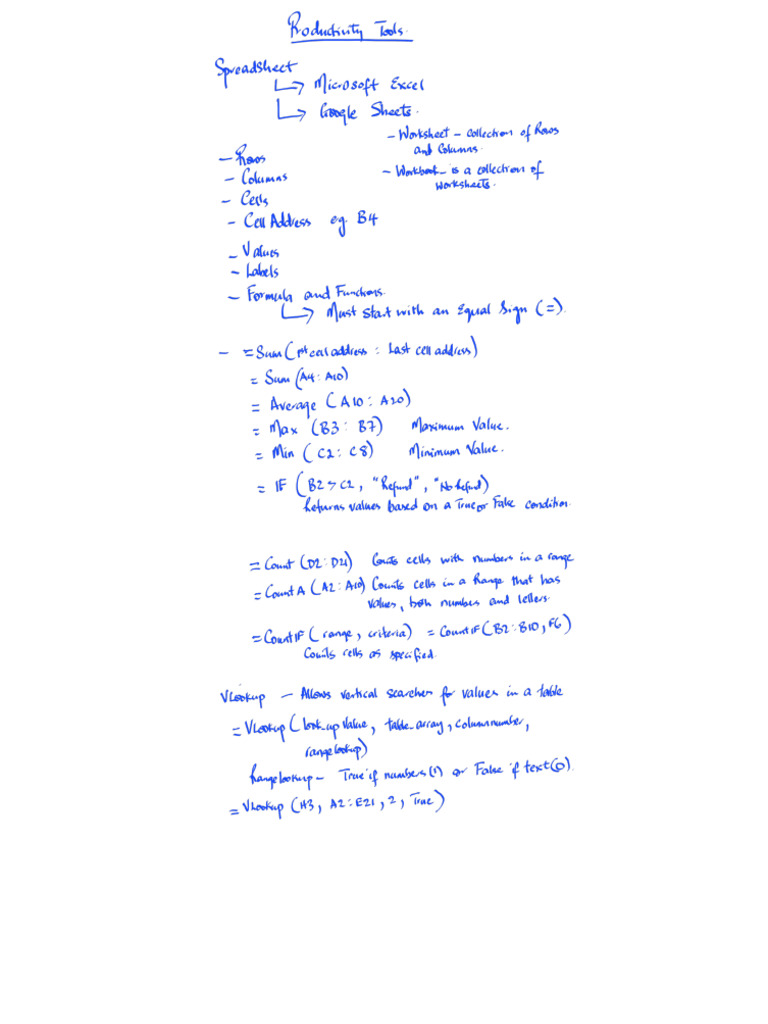 Productivity Tools.
Spreadsheet
↳ Microsoft Excel
↳ Google Sheets.
- Worksheet - collection of Rows
and Columns.
- Workbook - is a collection of
worksheets.
- Rows
- Columns
- Cells
- Cell Address eg. B4
- Values
- Labels
- Formula and Functions.
↳ Must start with an Equal Sign (=).
- = Sum (1st cell address : Last cell address)
= Sum (A4 : A10)
= Average (A10 : A20)
= Max (B3 : B7) Maximum Value.
= Min (C2 : C8) Minimum Value.
= IF (B2 > C2, "Refund", "No Refund)
Returns values based on a True or False condition.
= Count (D2 : D21) Counts cells with numbers in a range
= Count A (A2 : A10) Counts cells in a Range that has
values, both numbers and letters.
= Count IF (range, criteria) = Count IF (B2 : B10, F6)
Counts cells as specified.
VLookup - Allows vertical searches for values in a table
= VLookup (look_up value, table_array, column number,
range lookup)
Range lookup - True if numbers (1) or False if text (0).
= VLookup (H3, A2 : E21, 2, True)